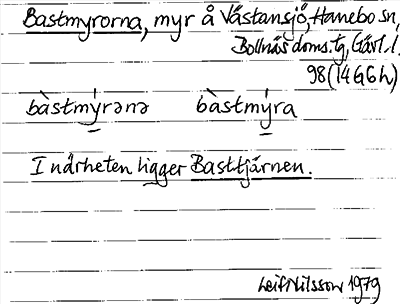 Bastmyrorna, myr å Västansjö, Hanebo sn,
Bollnäs doms.tg, Gävl. l.
98 (14G6h)
bàstmýrənə bàstmýra
I närheten ligger Basttjärnen.
Leif Nilsson 1979